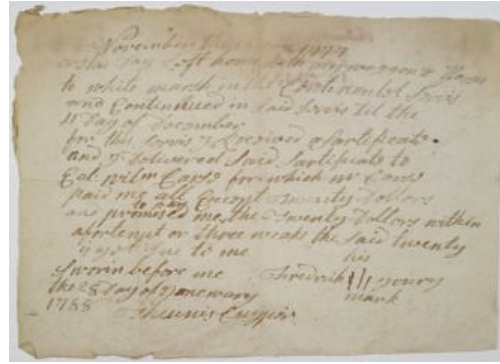 November 1777
Day left home with my waggon & Horses
to white marsh in the Continental Servis
and Continnued in Said Servis til the
11 Day of December
for this Servis I Received a Sartificate
and I Delivered Said Sartificate to
for which mr
paid me all Except twenty Dollors
and promised to pay me the twenty Dollors within
or three weeks the Said twenty
is yet Due to me
Sworin before me his
the 28 Day of Jenewary Fredrik ||| youry
1788 mark